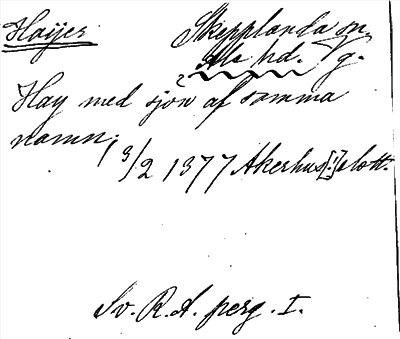 Hayer Skepplanda sn.
Ale hd. g.
Hay med sjön af samma
namn,
3/2 1377 Akerhus[!]slott.
Sv. R. A. perg. I.